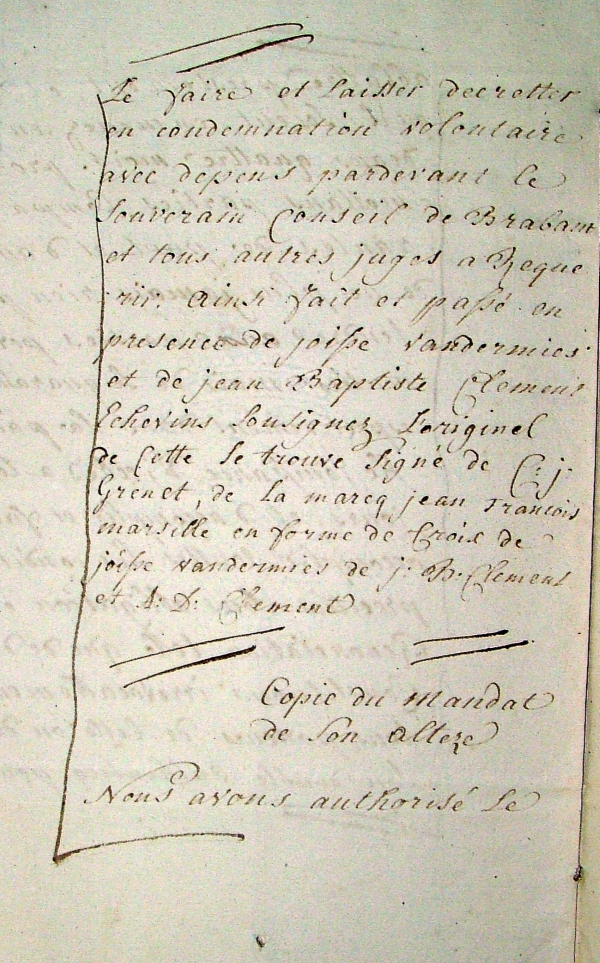 Le faire et laisser decretter
en condemnation volontaire
avec depens pardevant le
Souverain Conseil de Braban
et tous autres juges a Reque
rir. Ainsi fait et passé en
presence de joisse vandermies
et de jean Baptiste Clement
Echevins Sousignez L'originel
de Cette Se trouve Signé de C: j:
Grenet, de La marcq jean francois
marsille en forme de Croix de
joisse vandermies de j: B: Clement
et A: D: Clement
Copie du mandat
de Son alteze
Nous avons authorisé Le